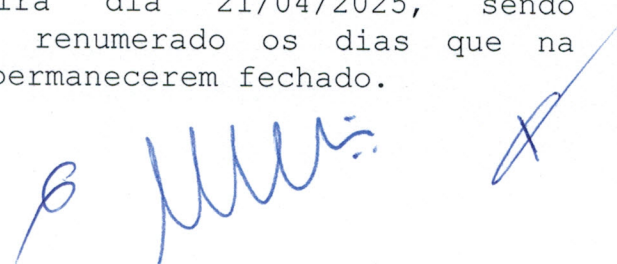 dia 21/04/2025, sendo
renumerado os dias que na
permanecerem fechado.